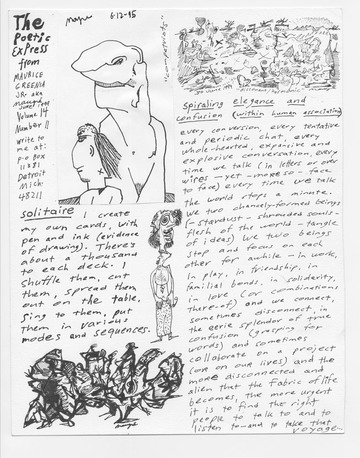 The
Poetic
Express
from
MAURICE
GREENIA
JR. aka
Volume 14
Number 11
write to
me at:
P-O Box
11281
Detroit
Mich
48211
6-12-95
solitaire I create
my own cards, with
pen and ink (evidence
of drawing). There's
about a thousand
to each deck. I
shuffle them, cut
them, spread them
out on the table,
sing to them, put
them in various
modes and sequences.
spiraling elegance and
confusion (within human association)
every conversion, every tentative
and periodic chat, every
whole-hearted, expansive and
explosive conversation, every
time we talk (in letters or over
wires - yet - more so - face
to face) every time we talk
the world stops a minute.
We two insanely-formed beings
(- stardust - shrouded souls -
flesh of the world - tangle
of ideas) We two beings
stop and focus on each
other for awhile - In work,
in play, in friendship, in
familial bonds, in solidarity,
in love (or combinations
thereof) and we connect,
sometimes disconnect, in
the eerie splendor of time
confusion (grasping for
words) and sometimes
collaborate on a project
(or on our lives) and the
more disconnected and
alien that the fabric of life
becomes, the more urgent
it is to find the right
people to talk to and to
listen to - and to take that
voyage...